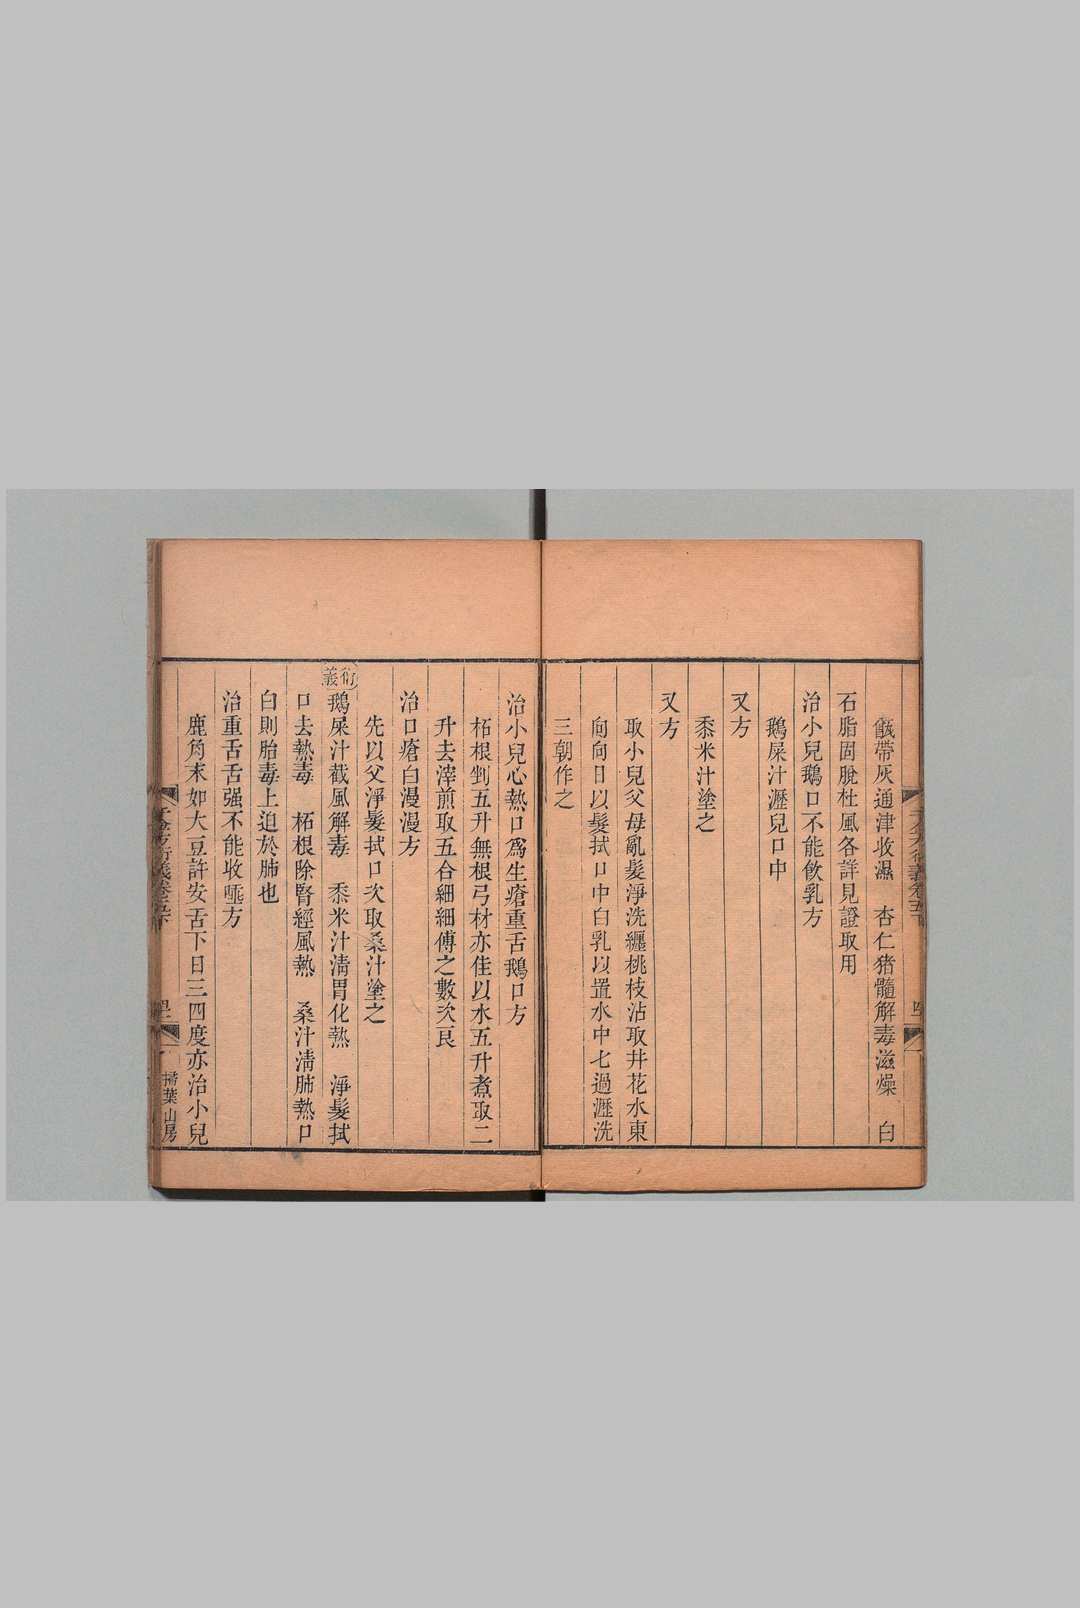 甑帶灰通津收濕　杏仁猪髓解毒滋燥　白
石脂固脫杜風各詳見證取用
治小兒鵝口不能飮乳方
鵝屎汁瀝兒口中
又方
黍米汁塗之
又方
取小兒父母亂髮淨洗纒桃枝沾取井花水東
向向日以髮拭口中白乳以置水中七過瀝洗
三朝作之
治小兒心熱口爲生瘡重舌鵝口方
柘根剉五升無根弓材亦佳以水五升煮取二
升去滓煎取五合細細傅之數次良
治口瘡白漫漫方
先以父淨髮拭口次取桑汁塗之
衍義
鵝屎汁截風解毒　黍米汁淸胃化熱　淨髮拭
口去熱毒　柘根除腎經風熱　桑汁淸肺熱口
白則胎毒上迫於肺也
治重舌舌强不能收唾方
鹿角末如大豆許安舌下日三四度亦治小兒
千金方衍義卷五下
掃葉山房